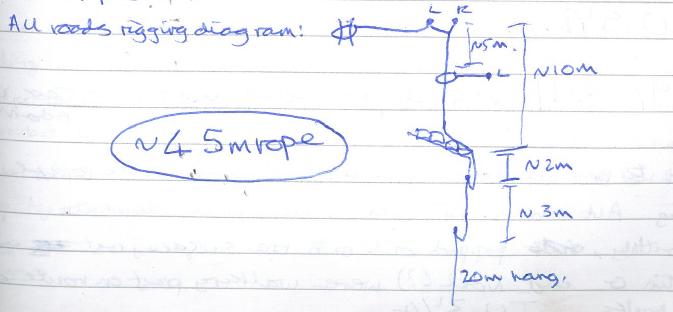 All roads rigging diagram:
L R
~5m.
L
~10m
~45m rope
~2m
~3m
20m hang.